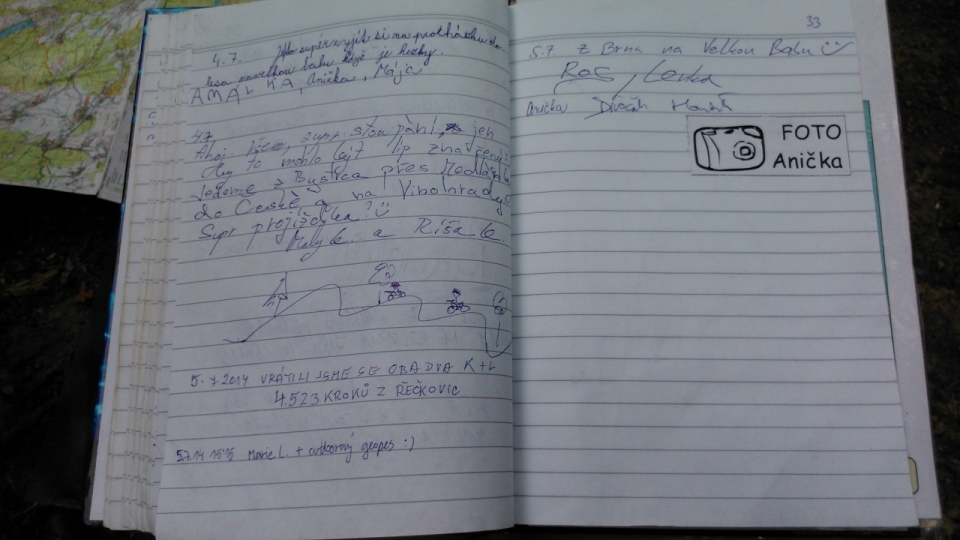 4.7. Je supr vyjít si na procházku do
lesa na velkou babu když je hezky.
AMÁLKA, Anička, Mája
4.7.
Ahoj
by to mohlo být líp značený!
Jedeme z Bystrca přes Medlánky
do České a na Vinohrady
Supr projížďka? ☺
a Ríša K.
5.7 2014 VRÁTILI JSME SE OBA DVA K+L
4.523 KROKŮ Z ŘEČKOVIC
5.7.14 Marie L. + outdoorový geopes :)
33
5.7. z Brna na Velkou Babu ☺
Lenka
Anička
FOTO
Anička